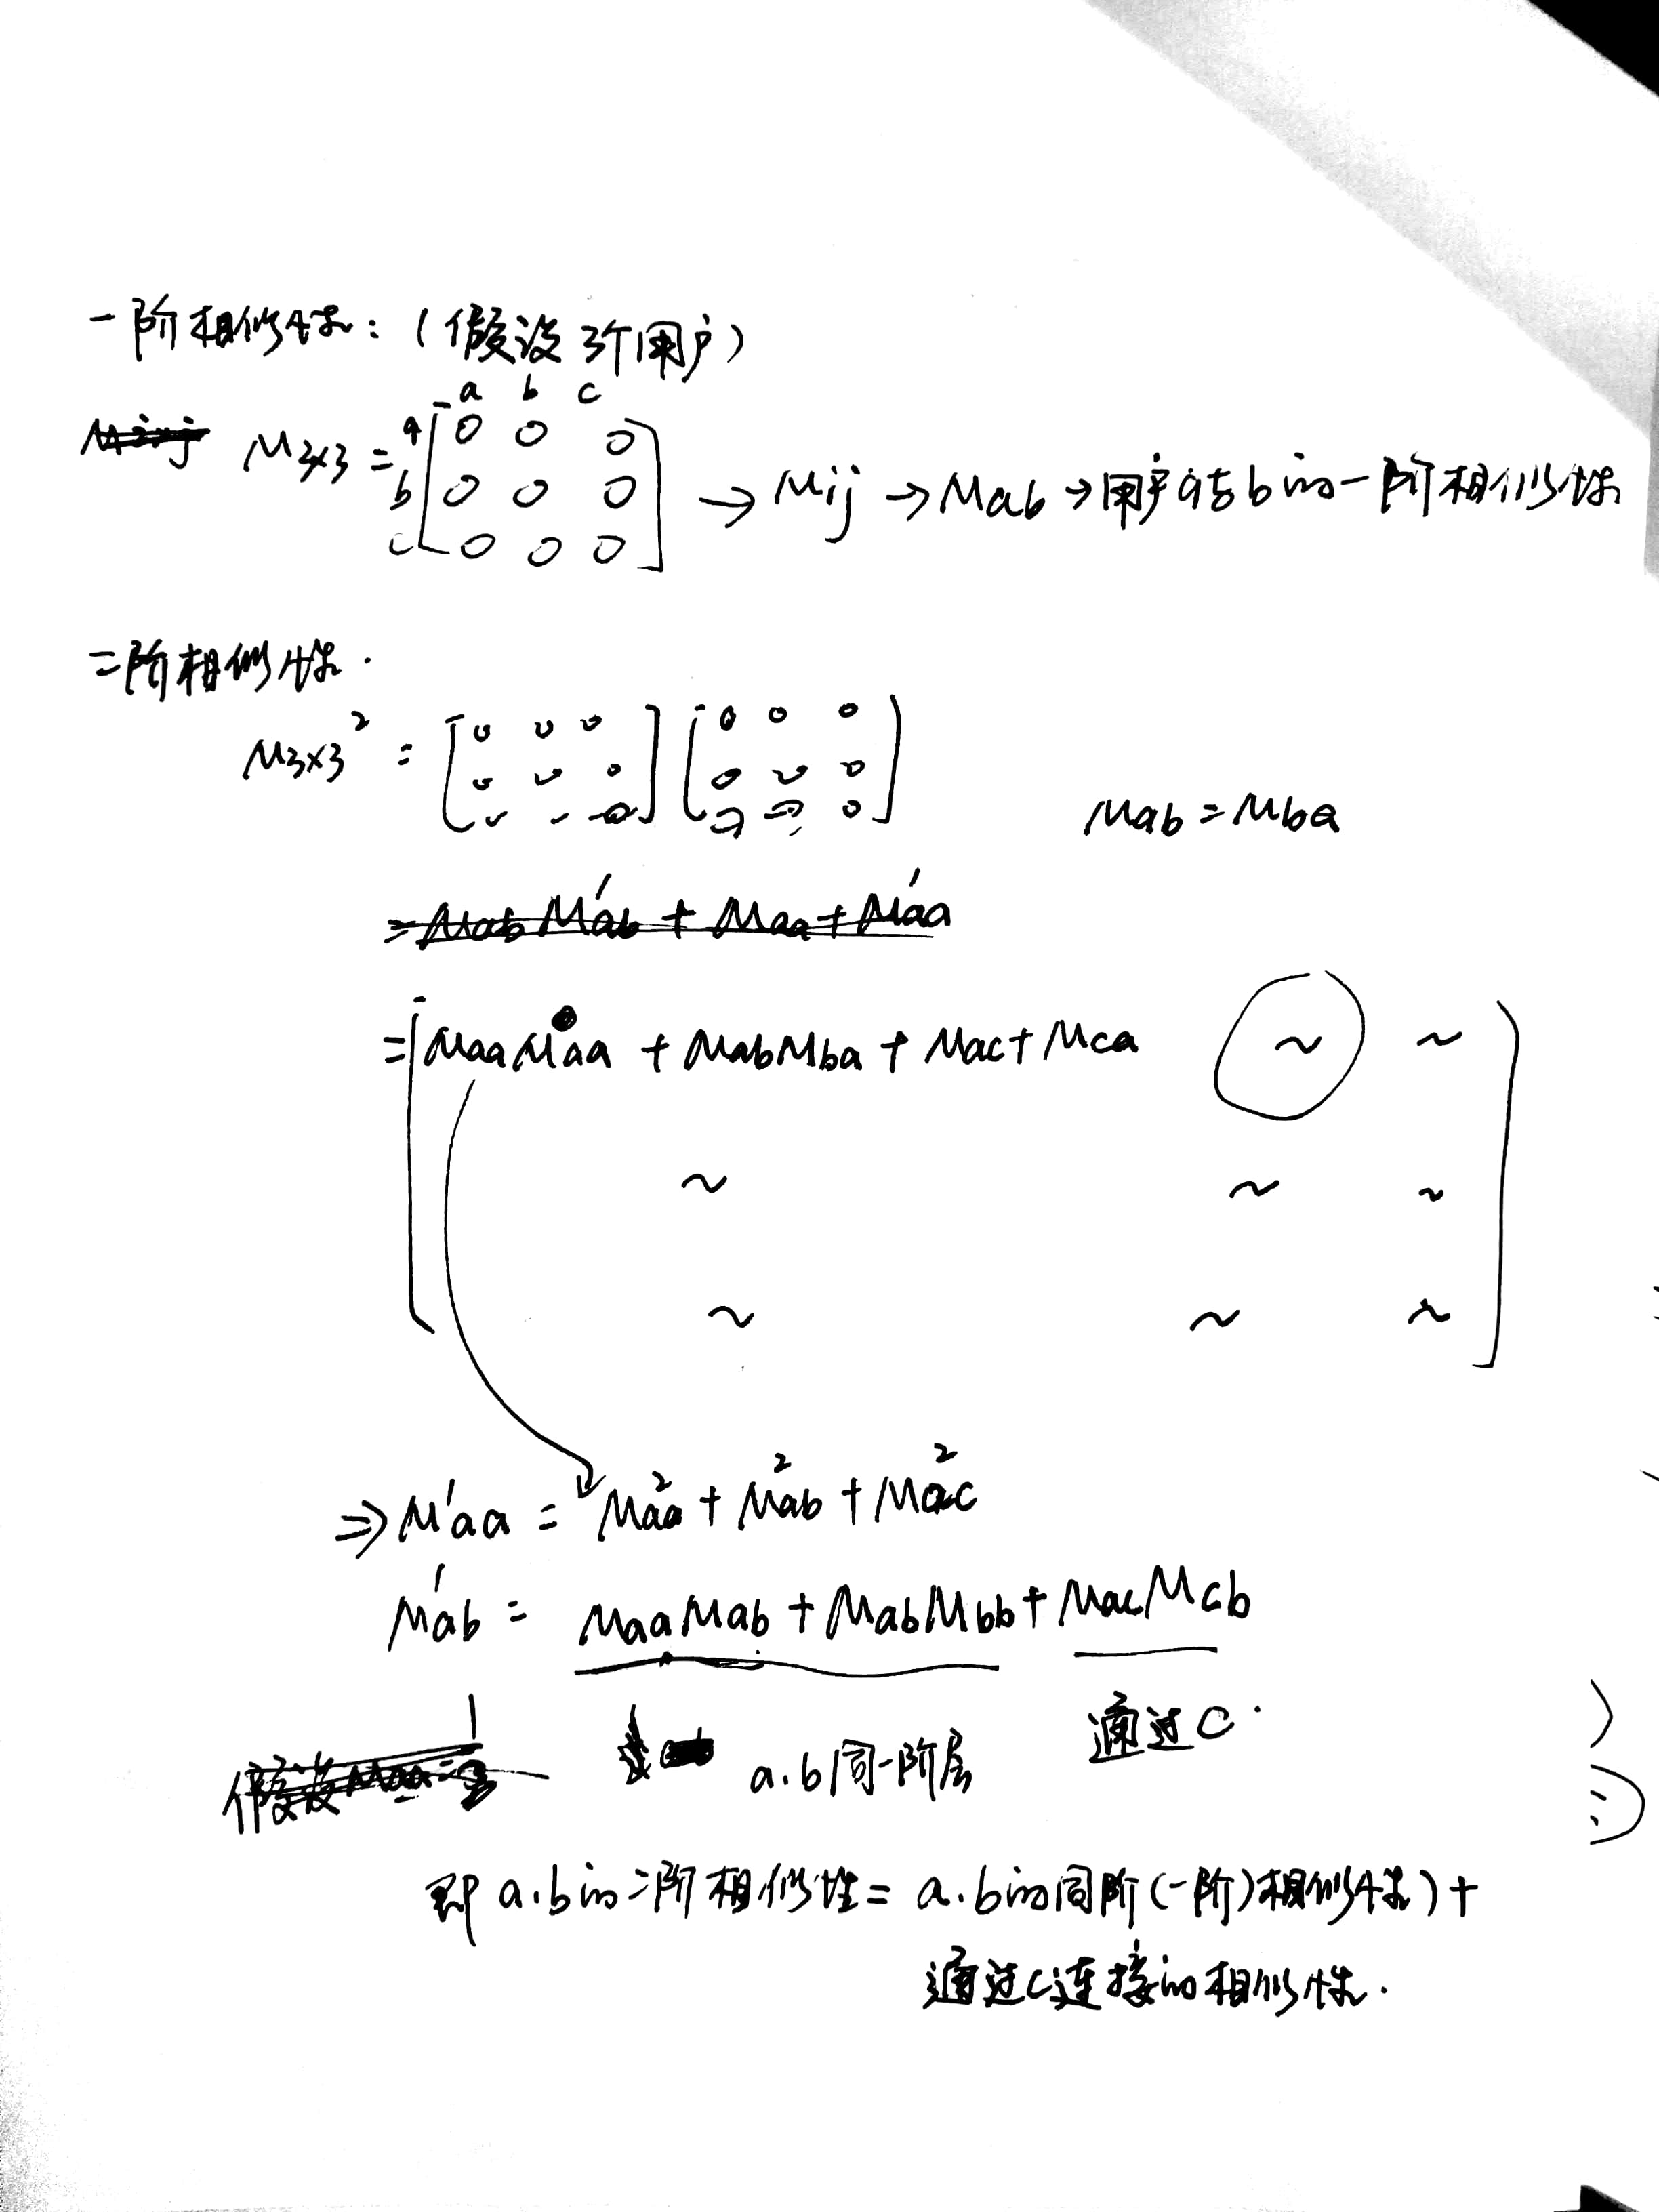 一阶相似性：（假设3个用户）
a b c
M3×3 = a [ 0 0 0
b 0 0 0 → Mij → Mab → 用户a与b的一阶相似性
c 0 0 0 ]
二阶相似性.
M3×3² = [ 0 0 0 ] [ 0 0 0 ]
Mab = Mba
= [ MaaMaa + MabMba + Mac+Mca ~ ~
~ ~ ~
~ ~ ~ ]
⇒ M'aa = Maa² + Mab² + Mac²
M'ab = MaaMab + MabMbb + MacMcb
a.b同一阶层 通过C.
即 a.b的二阶相似性 = a.b的同阶(一阶)相似性) +
通过c连接的相似性.